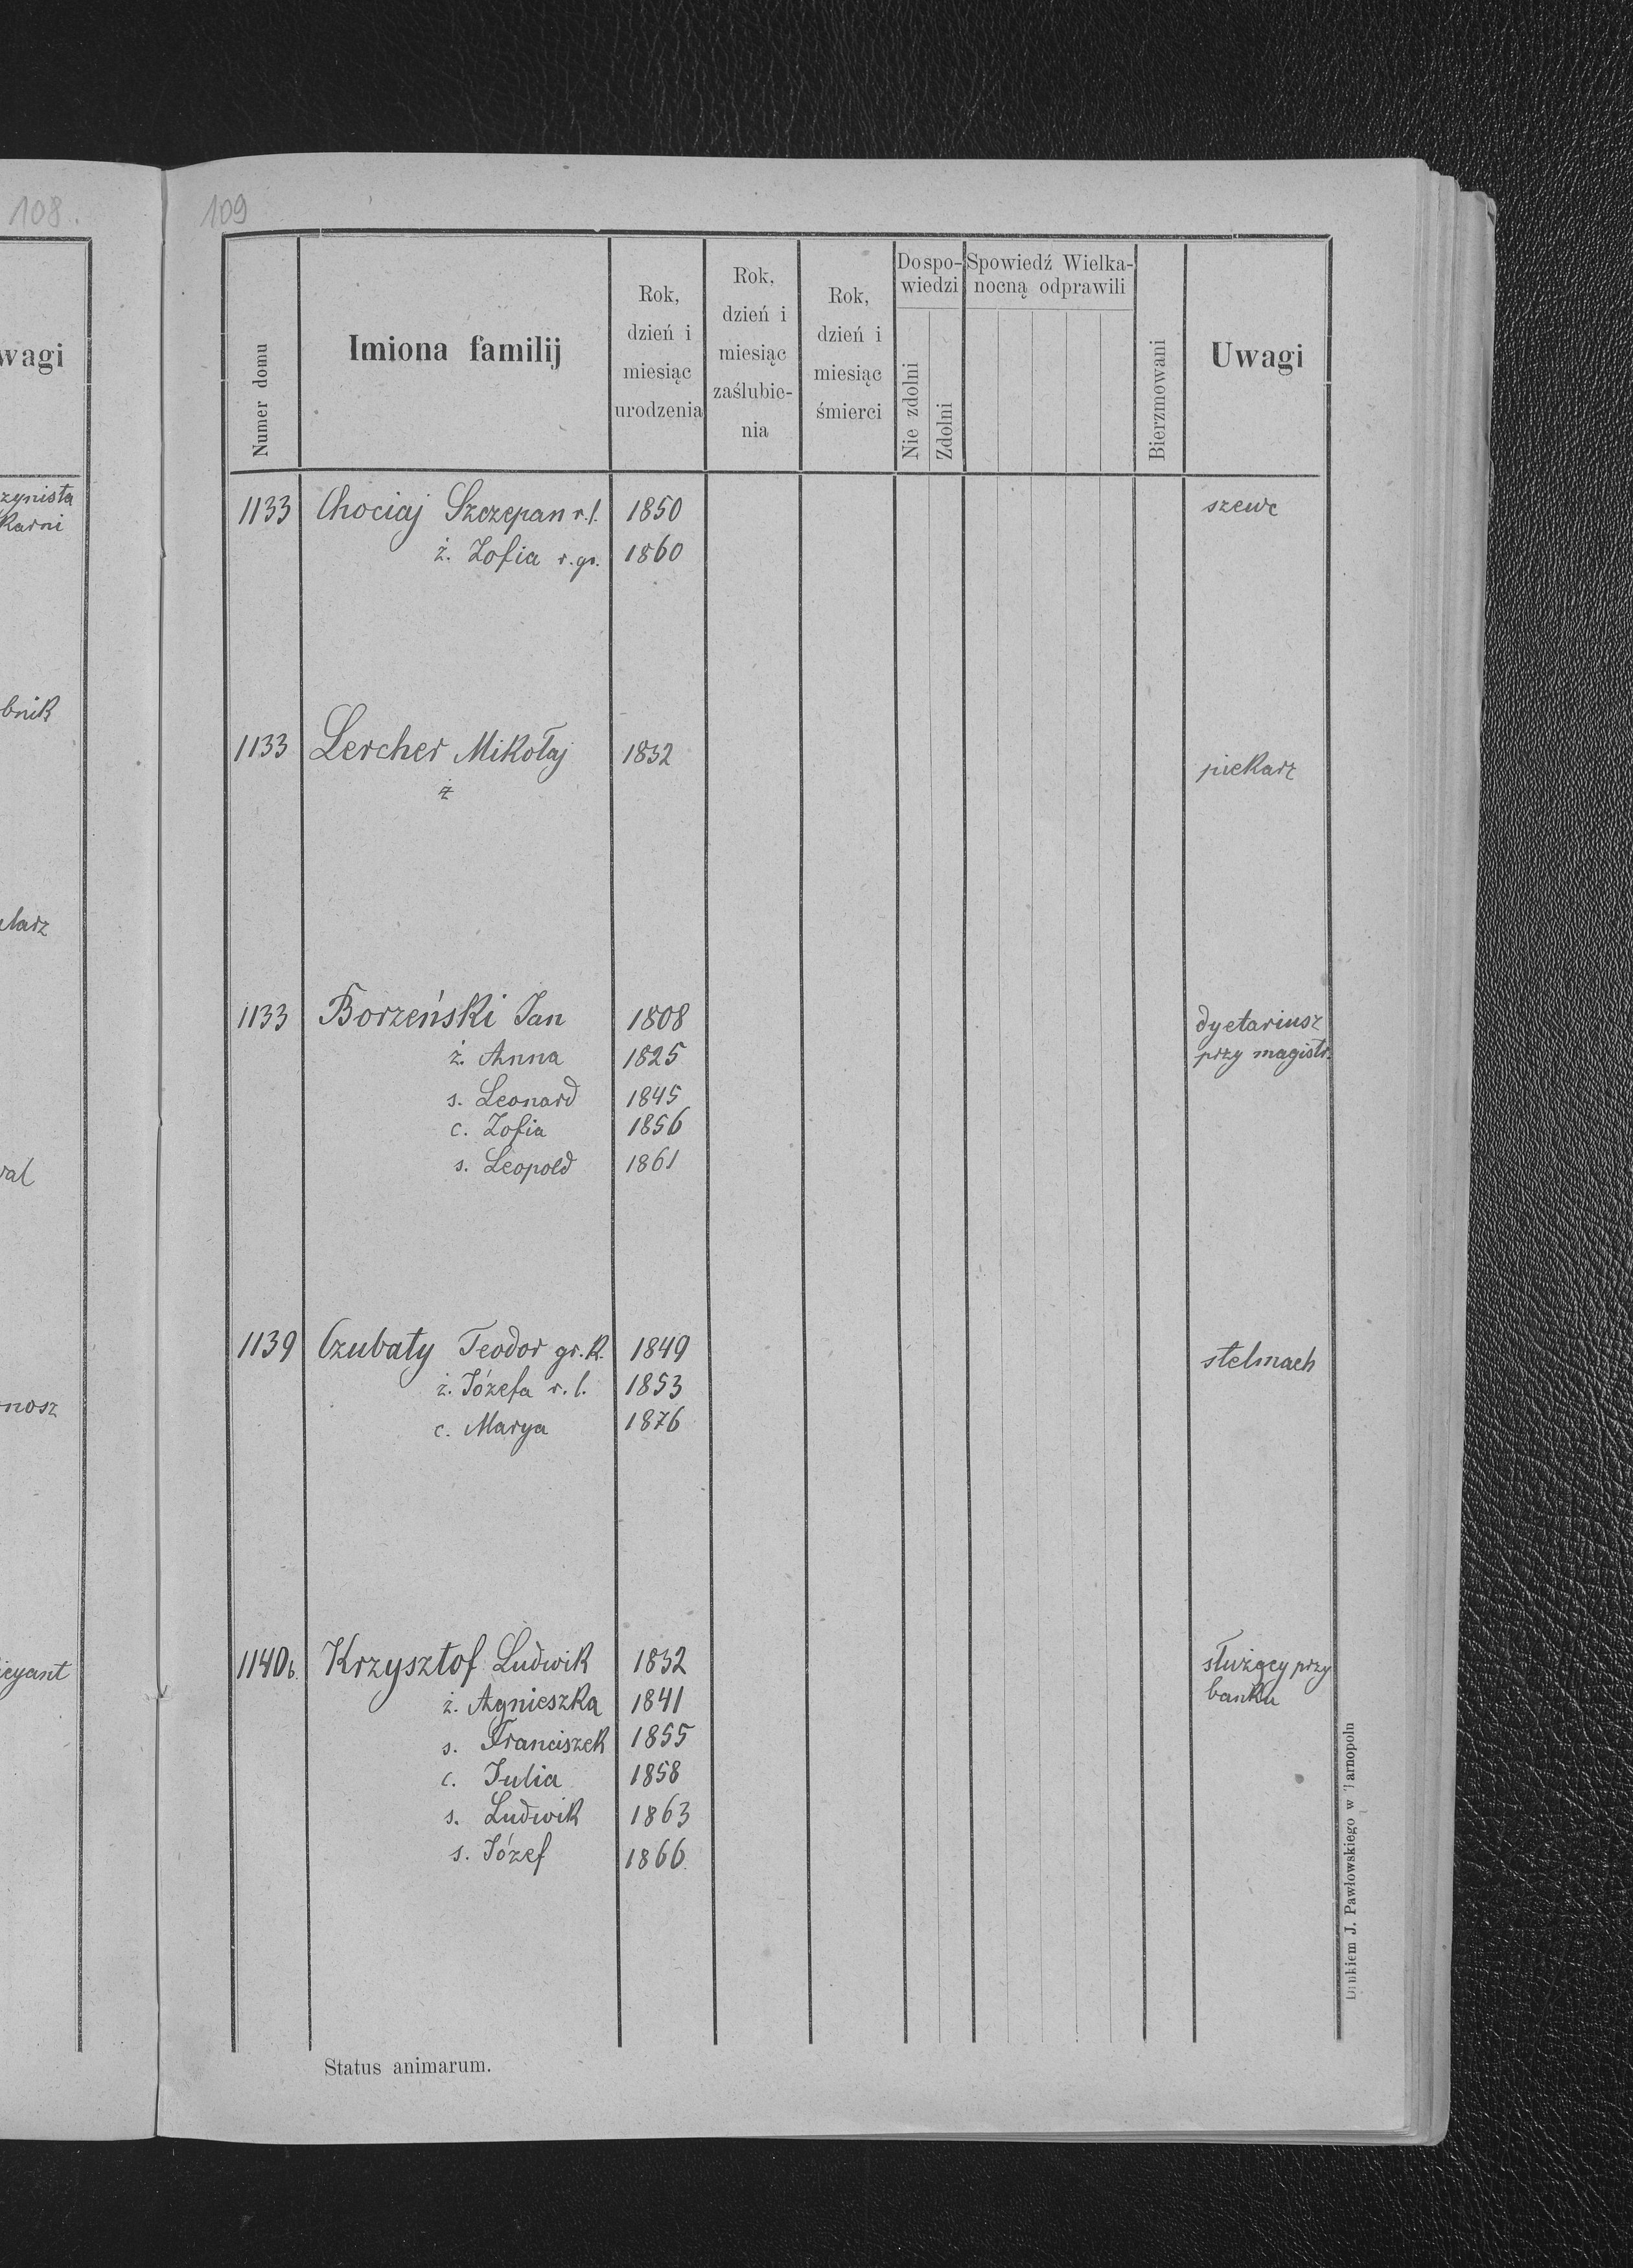 108.
wagi
zynista
karni
bnik
larz
ral
nosz
icyant
109
Numer domu
Imiona familij
Rok,
dzień i
miesiąc
urodzenia
Rok,
dzień i
miesiąc
zaślubie-
nia
Rok,
dzień i
miesiąc
śmierci
Do spo-
wiedzi
Nie zdolni
Zdolni
Spowiedź Wielka-
nocną odprawili
Bierzmowani
Uwagi
1133 Chociaj Szczepan r.l. 1850 szewc
ż. Zofia r.gr. 1860
1133 Lercher Mikołaj 1832 piekarz
ż
1133 Borzeński Jan 1808 dyetariusz
ż. Anna 1825 przy magistr.
s. Leonard 1845
c. Zofia 1856
s. Leopold 1861
1139 Czubaty Teodor gr.k. 1849 stelmach
ż. Józefa r.l. 1853
c. Marya 1876
1140b. Krzysztof Ludwik 1832 służący przy
ż. Agnieszka 1841 banku
s. Franciszek 1855
c. Julia 1858
s. Ludwik 1863
s. Józef 1866.
Status animarum.
Drukiem J. Pawłowskiego w Tarnopoln